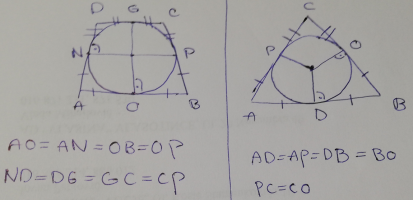 D G C
N P
A O B
AO = AN = OB = OP
ND = DG = GC = CP
C
P O
A D B
AD = AP = DB = BO
PC = CO